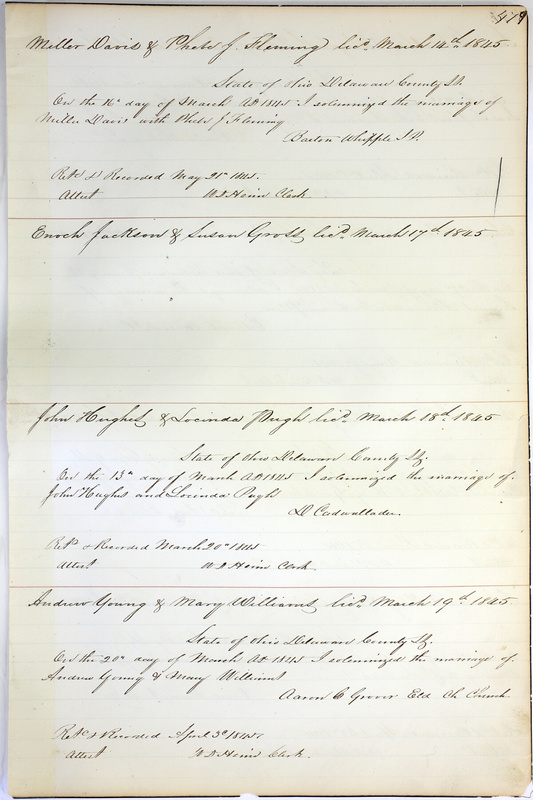 419
Miller Davis & Phebe J. Fleming lic'd March 14th 1845
State of Ohio Delaware County SS.
On the 16th day of March AD 1845 I solemnized the marriage of
Miller Davis with Phebe J Fleming
Barton Whipple J.P.
Retd & Recorded May 21st 1845.
Attest W.D. Heim Clerk
Enoch Jackson & Susan Gross, lic'd March 17th 1845
John Hughes & Lucinda Pugh lic'd March 18th 1845
State of Ohio Delaware County SS.
On the 13th day of March AD 1845 I solemnized the marriage of
John Hughes and Lucinda Pugh
D Cadwallader.
Retd & Recorded March 20th 1845
Attest W.D. Heim Clerk.
Andrew Young & Mary Williams lic'd March 19th 1845
State of Ohio Delaware County SS.
On the 20th day of March AD 1845 I solemnized the marriage of
Andrew Young & Mary Williams
Aaron C Grover Eld Ch Church
Retd & Recorded April 3d 1845
Attest W.D. Heim Clerk.